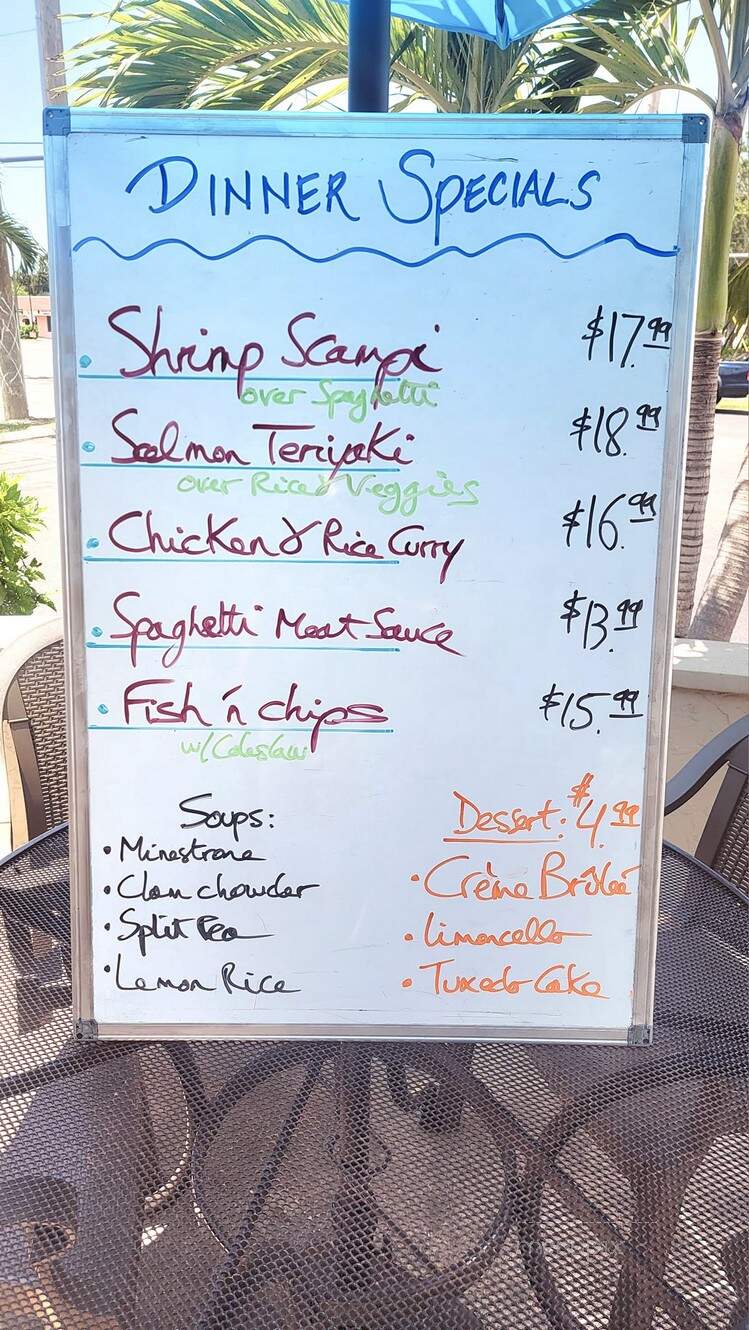 DINNER SPECIALS
Shrimp Scampi $17.99
over Spaghetti
Salmon Teriyaki $18.99
over Rice & Veggies
Chicken & Rice Curry $16.99
Spaghetti Meat Sauce $13.99
Fish 'n chips $15.99
w/ Coleslaw
Soups:
• Minestrone
• Clam chowder
• Split Pea
• Lemon Rice
Dessert: $4.99
• Crème Brûleé
• Limoncello
• Tuxedo Cake